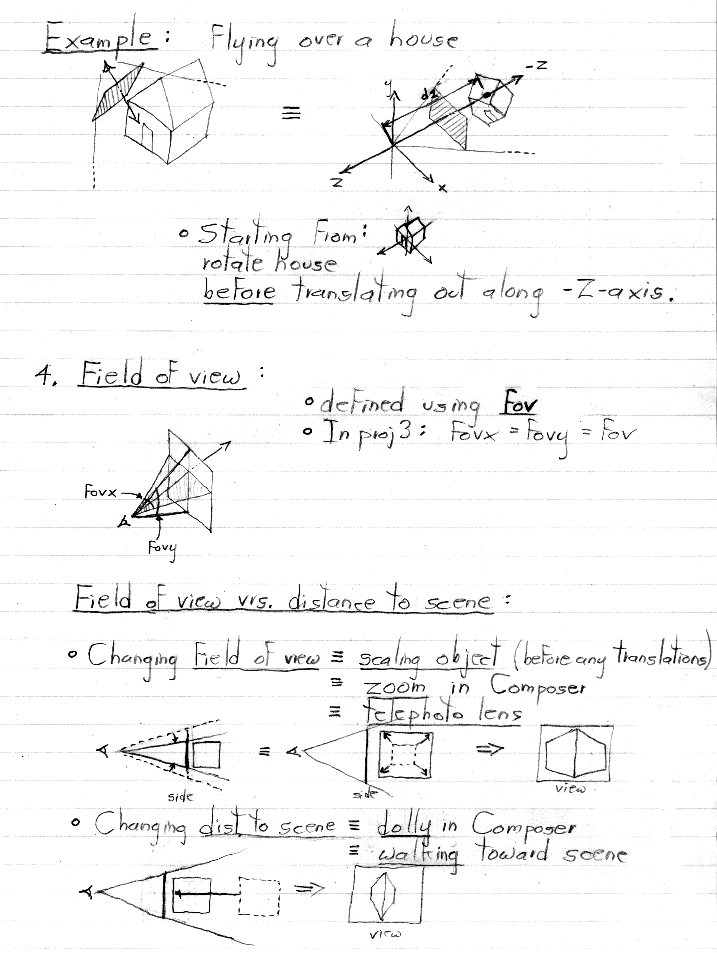 Example: Flying over a house
≡
y
d1
-Z
Z
x
• Starting From:
rotate house
before translating out along -Z-axis.
4. Field of view:
• defined using Fov
• In proj3: Fovx = Fovy = Fov
Fovx
Fovy
Field of view vrs. distance to scene:
• Changing Field of view ≡ scaling object (before any translations)
≡ zoom in Composer
≡ telephoto lens
≡ ⇒
side side view
• Changing dist to scene ≡ dolly in Composer
≡ walking toward scene
⇒
view